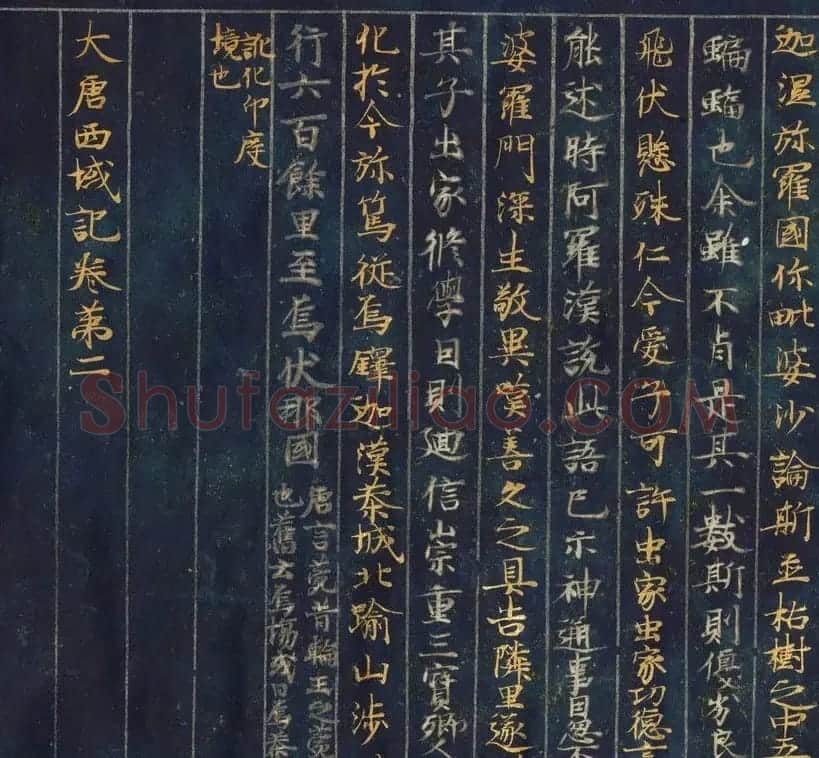 迦濕弥羅國作毗婆沙論斯並枯樹之中五
蝙蝠也余雖不肖是其一數斯則優劣良
飛伏懸殊仁今愛子可許出家出家功德言
能述時阿羅漢說此語已示神通事因忽不
婆羅門深生敬異歎善久之具告隣里遂
其子出家修學因則迴信崇重三寶鄉人
化於今弥篤從烏鐸迦漢荼城北踰山涉
行六百餘里至烏伏那國
唐言菀昔輪王之菀
也舊云烏場或曰烏荼
訛化印度
境也
大唐西域記卷第二
Shufaziliao.COM